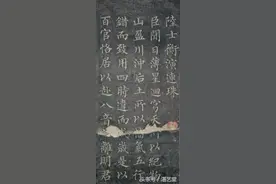 陸士衡演連珠
臣聞日薄星迴穹天所以紀物
山盈川沖后土所以播氣五行
錯而致用四時違而歲是以
百官恪居以赴八音離明君
头条号